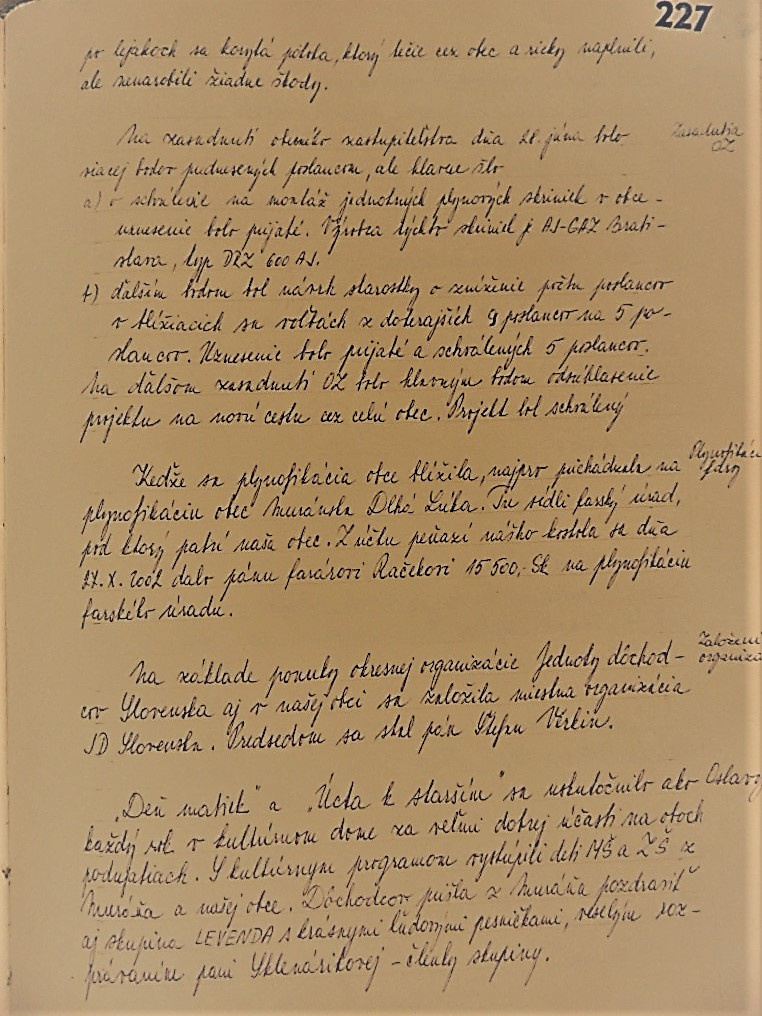 227
po lejakoch sa korytá potoka, ktorý tečie cez obec a riečky naplnili,
ale nenarobili žiadne škody.
Na zasadnutí obecného zastupiteľstva dňa 28. júna bolo
Zasadnutia
OZ
viacej bodov prednesených poslancom, ale hlavne šlo
a) o schválenie na montáž jednotných plynových skriniek v obce -
uznesenie bolo prijaté. Výrobca týchto skriniek je AJ-GAZ Brati-
slava, typ DRZ 600 AJ.
b) ďalším bodom bol návrh starostky o zníženie počtu poslancov
v blížiacich sa voľbách z doterajších 9 poslancov na 5 po-
slancov. Uznesenie bolo prijaté a schválených 5 poslancov.
Na ďalšom zasadnutí OZ bolo hlavným bodom odsúhlasenie
projektu na novú cestu cez celú obec. Projekt bol schválený
Keďže sa plynofikácia obce blížila, najprv prichádzala na
plynofikáciu obec Muránska Dlhá Lúka. Tu sídli farský úrad,
pod ktorý patrí naša obec. Z účtu peňazí nášho kostola sa dňa
X. 2002 dalo pánu farárovi Račekovi 15 500,- Sk na plynofikáciu
farského úradu.
Na základe ponuky okresnej organizácie Jednoty dôchod-
Založeni
organizá
cov Slovenska aj v našej obci sa založila miestna organizácia
JD Slovenska. Predsedom sa stal pán Štefan
„Deň matiek" a „Úcta k starším" sa uskutočnilo ako
Oslavy
každý rok v kultúrnom dome za veľmi dobrej účasti na oboch
podujatiach. S kultúrnym programom vystúpili deti MŠ a ZŠ z
Muráňa a našej obce. Dôchodcov prišla z Muráňa pozdraviť
aj skupina LEVENDA s krásnymi ľudovými pesničkami, veselým roz-
právaním pani Sklenárikovej - členky skupiny.